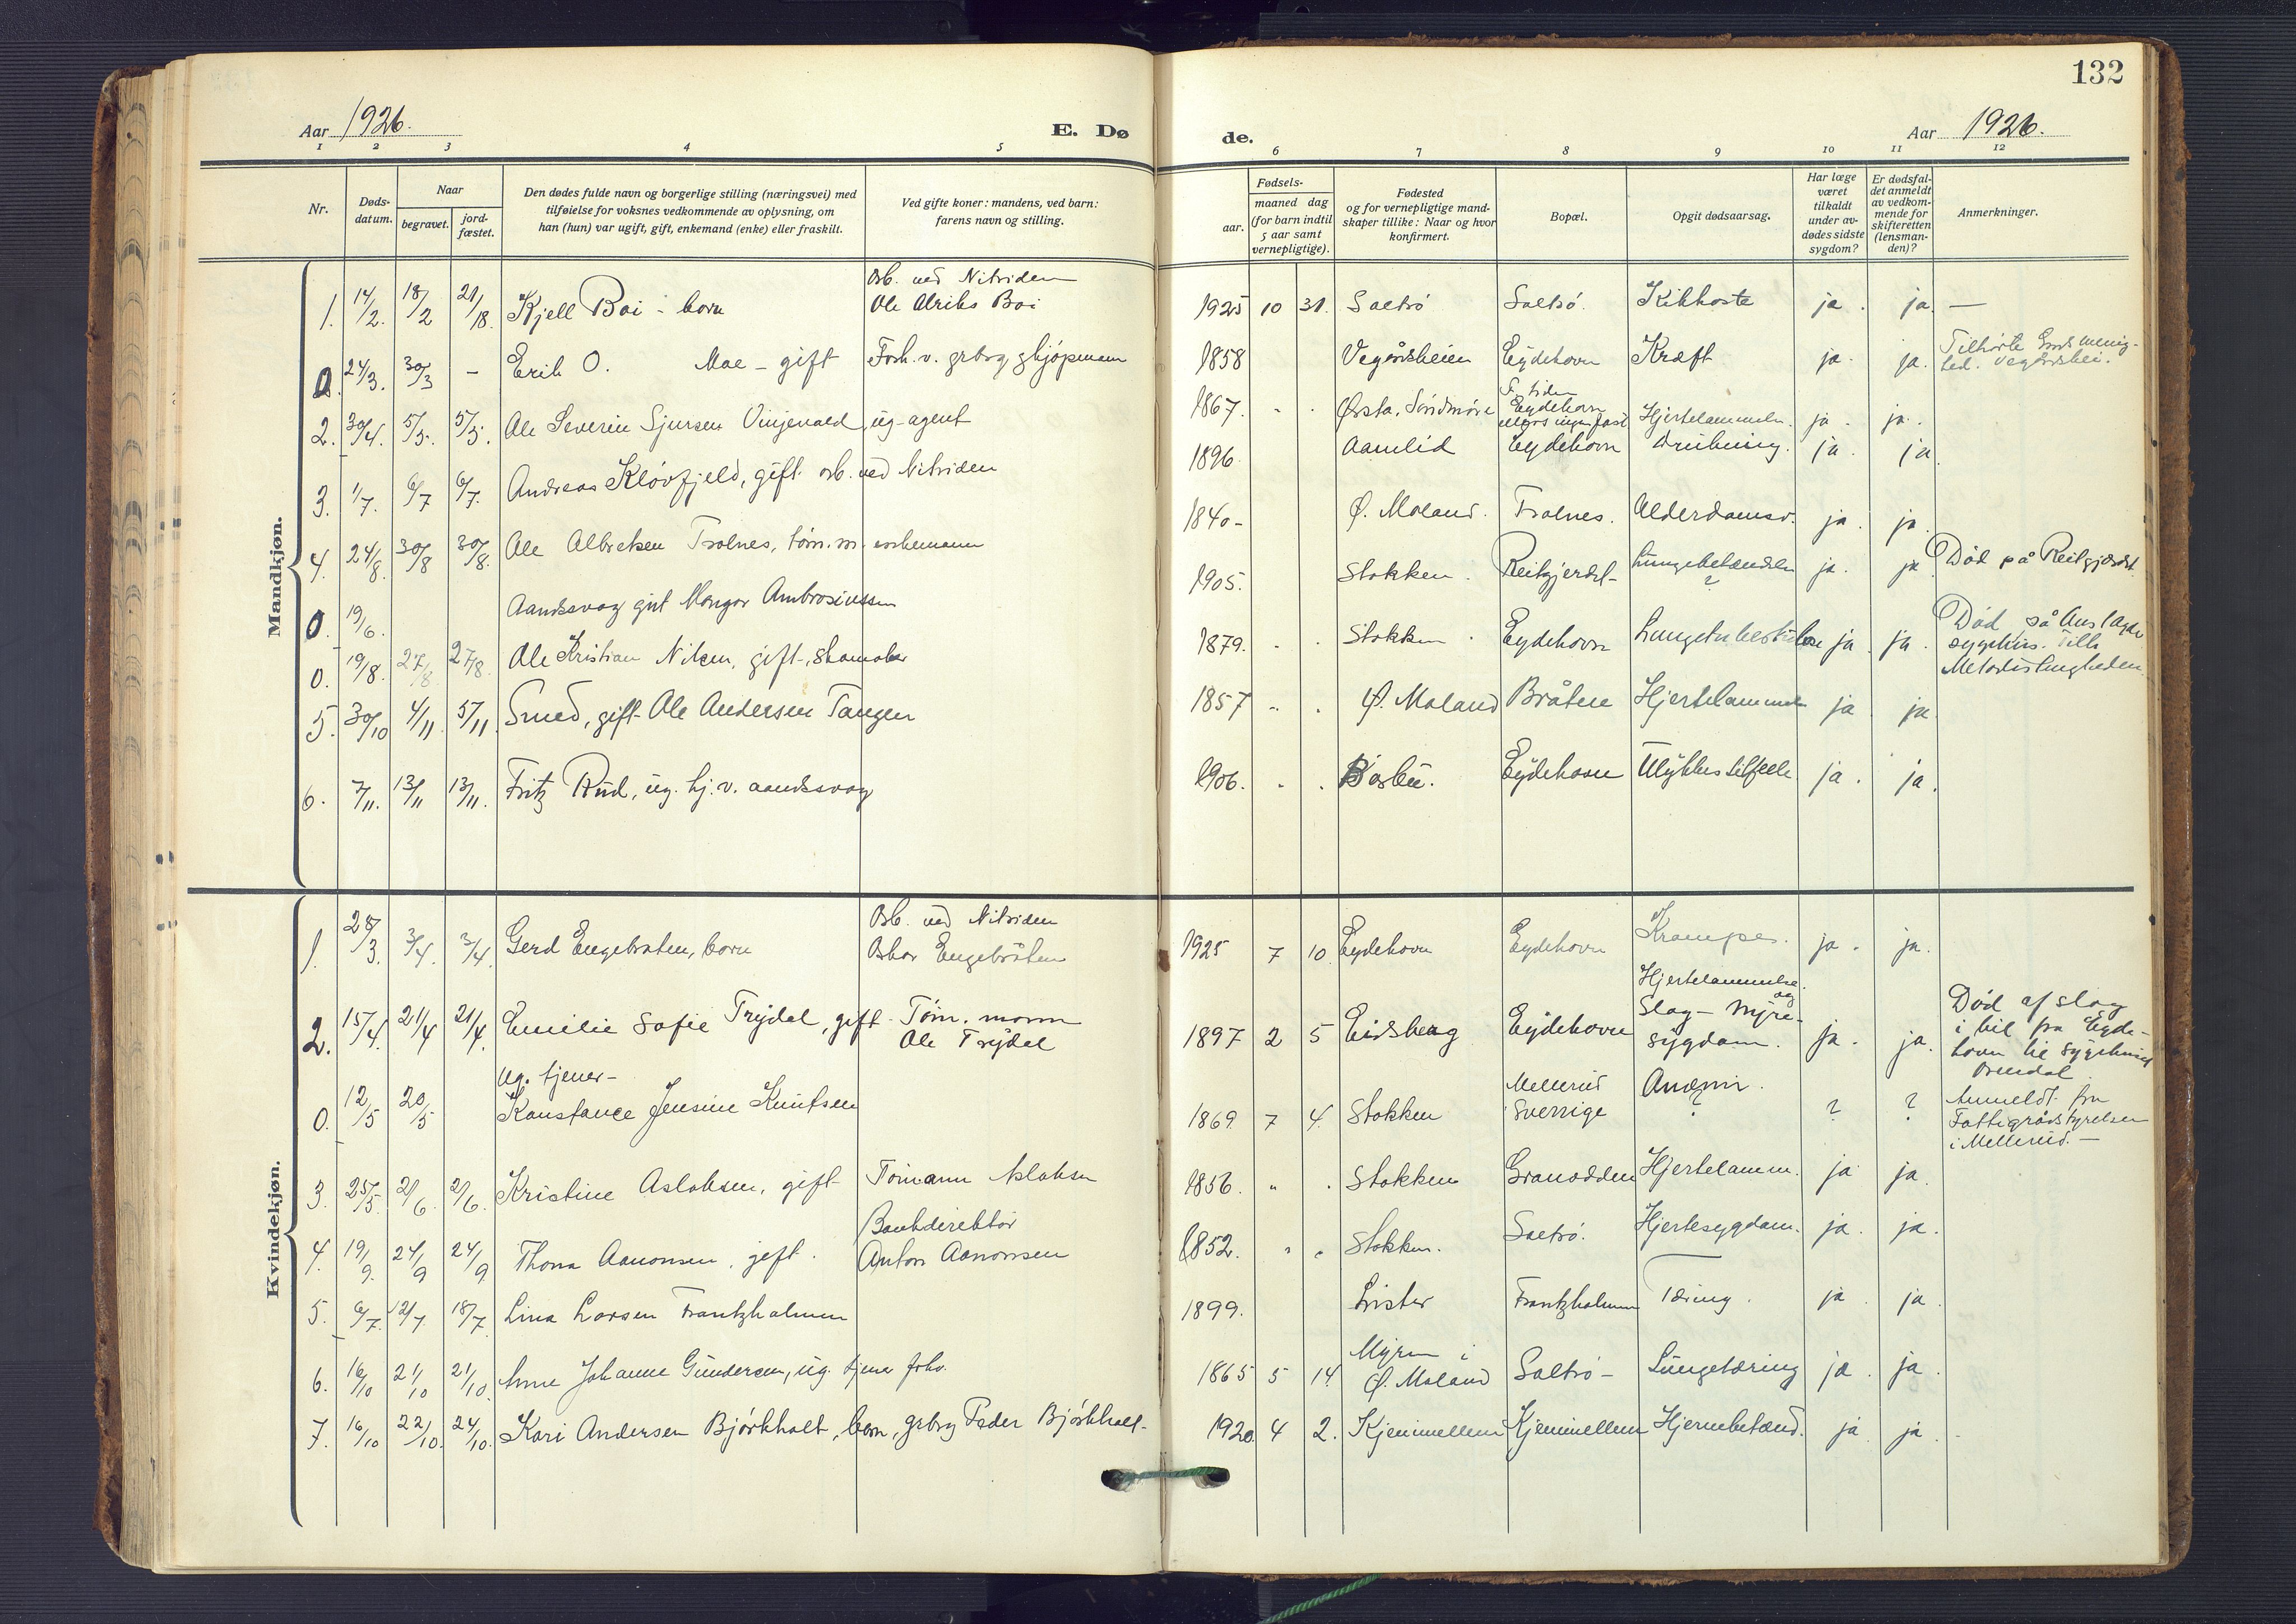 132
Aar 1926.
E. Dø
de.
Aar 1926.
1 2 3 4 5 6 7 8 9 10 11 12
Nr.
Døds-
datum.
Naar
begravet.
jord-
fæstet.
Den dødes fulde navn og borgerlige stilling (næringsvei) med
tilføielse for voksnes vedkommende av oplysning, om
han (hun) var ugift, gift, enkemand (enke) eller fraskilt.
Ved gifte koner: mandens, ved barn:
farens navn og stilling.
Fødsels-
aar.
maaned dag
(for barn indtil
5 aar samt
vernepligtige).
Fødested
og for vernepligtige mand-
skaper tillike: Naar og hvor
konfirmert.
Bopæl.
Opgit dødsaarsag.
Har læge
været
tilkaldt
under av-
dødes sidste
sygdom?
Er dødsfal-
det anmeldt
av vedkom-
mende for
skifteretten
(lensman-
den)?
Anmerkninger.
Mandkjøn.
Arb. ved Nitriden
1. 14/2. 18/2 21/18. Kjell Boi - barn Ole Alriks Boi 1925 10 31. Saltrø Saltrø. Kikhoste ja. ja. —
0. 24/3. 30/3 - Erik O. Moe - gift 1858 Vegårsheien Eydehavn Kræft ja. ja.
2. 30/4. 5/5. 5/5. Ole Severin Sjursen Vinjevold, ug-agent 1867. Ørsta, Søndmøre Eydehavn Hjertelammelse. ja. ja.
3. 1/7. 6/7 6/7. Andreas Kløvfjeld, gift arb. ved Nitriden 1896. Aamlid Eydehavn Drukning. ja. ja.
4. 24/8. 30/8 30/8. Ole Albretsen Tralnes, tøm.m. enkemann 1840- Ø. Moland. Tralnes. Alderdomssv. ja. ja.
0. 19/6. Aandssvag gut Mangor Ambrosiussen 1905. Stokken. Reitgjerdet- Lungebetændelse ? ja. ja. Død på Reitgjerdet.
0. 19/8. 27/8 27/8. Ole Kristian Nilsen, gift, skomaker 1879. Stokken. Eydehavn Lungetuberkulose ja. ja. Død på Aust Agder
sygehus. Tilh.
Metodistmenigheden
5. 30/10 4/11 5/11. Smed, gift Ole Andersen Tangen 1857 Ø. Moland Bråten Hjertelammelse ja ja.
6. 7/11. 13/11 13/11. Fritz Rud, ug. hj. v. aandssvag 1906. Barbu. Eydehavn Ulykkestilfelle ja. ja.
Kvindekjøn.
Arb. ved Nitriden
1. 28/3. 3/4. 3/4. Gerd Engebraten, barn Oskar Engebråten 1925 7 10. Eydehavn Eydehavn Krampe. ja. ja.
2. 15/4. 21/4 21/4. Emilie Sofie Trydal, gift - Tøm. mann
Ole Trydal 1897 2 5 Eidsberg Eydehavn Hjertelammelse.
Slag - og Nyre-
sygdom. ja. ja. Død af slag
i bil fra Eyde-
havn til Sygehuset
Arendal
Ug. tjener-
0. 12/5 20/5 Konstance Jensine Knutsen 1869. 7 4. Stokken Mellerud
Sverrige Anæmi. ? ? ? Anmeldt fra
Fattigvårdstyrelsen
i Mellerud. —
3. 25/5. 2/6. 2/6. Kristine Aslaksen, gift Tomann Aslaksen 1856. Stokken Granodden Hjertelamm. ja ja.
Bankdirektør
4. 19/9. 24/9 24/9 Thona Aanonsen, gift. Anton Aanonsen 1852. Stokken. Saltrø. Hjertesygdom. ja. ja.
5. 6/7. 12/7. 18/7. Lina Larsen Frantzholmen 1899. Lister Frantzholmen Tæring. ja. ja.
6. 16/10 21/10 21/10. Anne Johanne Gundersen, ug. tjener 1865 5 14. Myren i
Ø. Moland Saltrø - Lungetæring ja. ja.
7. 16/10 22/10. 24/10. Kari Andersen Bjørkholt, barn, grbrg Peder Bjørkholt. 1920. 4 2. Kjenmellem Kjenmellem Hjernebetænd. ja. ja.